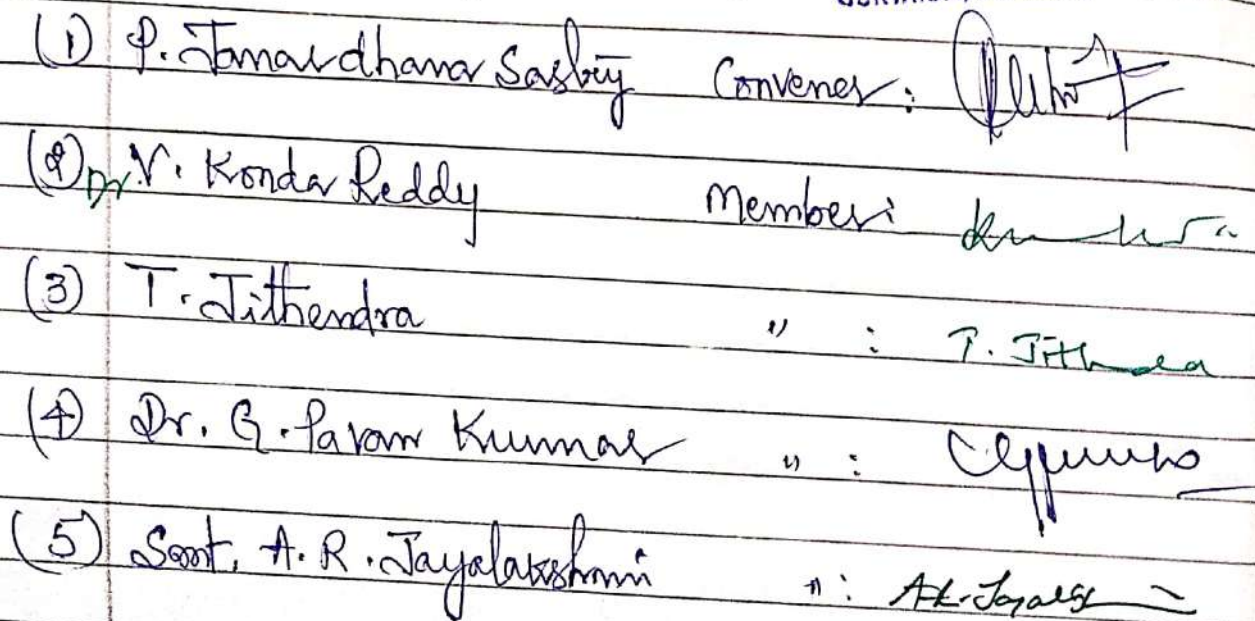 (1) P. Janardhana Sastry Convener:
(2) Dr. V. Konda Reddy Member:
(3) T. Jithendra " : T. Jithendra
(4) Dr. G. Pavan Kumar " :
(5) Smt. A. R. Jayalakshmi " :